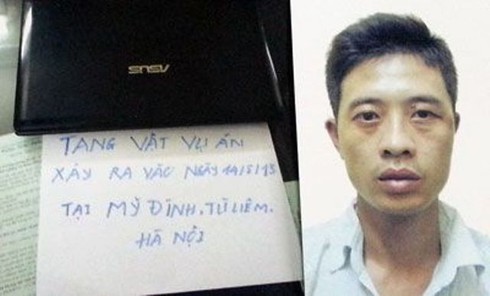 ASUS
TANG VẬT VỤ ÁN
XẢY RA VÀO NGÀY 14/5/15
TẠI MỸ ĐÌNH, TỪ LIÊM,
HÀ NỘI